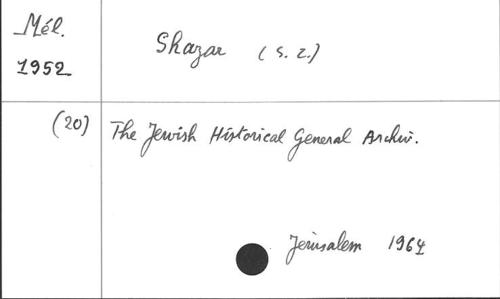 Mél.
1952
Shazar (S. Z.)
(20) The Jewish Historical General Archiv.
Jerusalem 1964